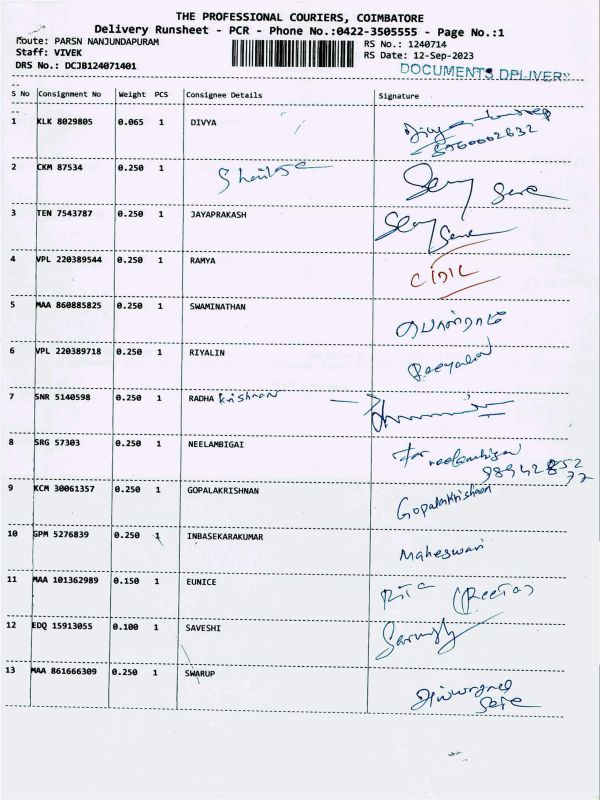 THE PROFESSIONAL COURIERS, COIMBATORE
Delivery Runsheet - PCR - Phone No.:0422-3505555 - Page No.:1
Route: PARSN NANJUNDAPURAM RS No.: 1240714
Staff: VIVEK RS Date: 12-Sep-2023
DRS No.: DCJB124071401 DOCUMENTS DELIVERY
S No Consignment No Weight PCS Consignee Details Signature
1 KLK 8029805 0.065 1 DIVYA
2 CKM 87534 0.250 1
3 TEN 7543787 0.250 1 JAYAPRAKASH
4 VPL 220389544 0.250 1 RAMYA
5 MAA 860885825 0.250 1 SWAMINATHAN
6 VPL 220389718 0.250 1 RIYALIN
7 SNR 5140598 0.250 1 RADHA Krishnan
8 SRG 57303 0.250 1 NEELAMBIGAI For neelambigai
9 KCM 30061357 0.250 1 GOPALAKRISHNAN Gopalakrishnan
10 GPM 5276839 0.250 1 INBASEKARAKUMAR Maheswari
11 MAA 101362989 0.150 1 EUNICE (Reeta)
12 EDQ 15913055 0.100 1 SAVESHI
13 MAA 861666309 0.250 1 SWARUP